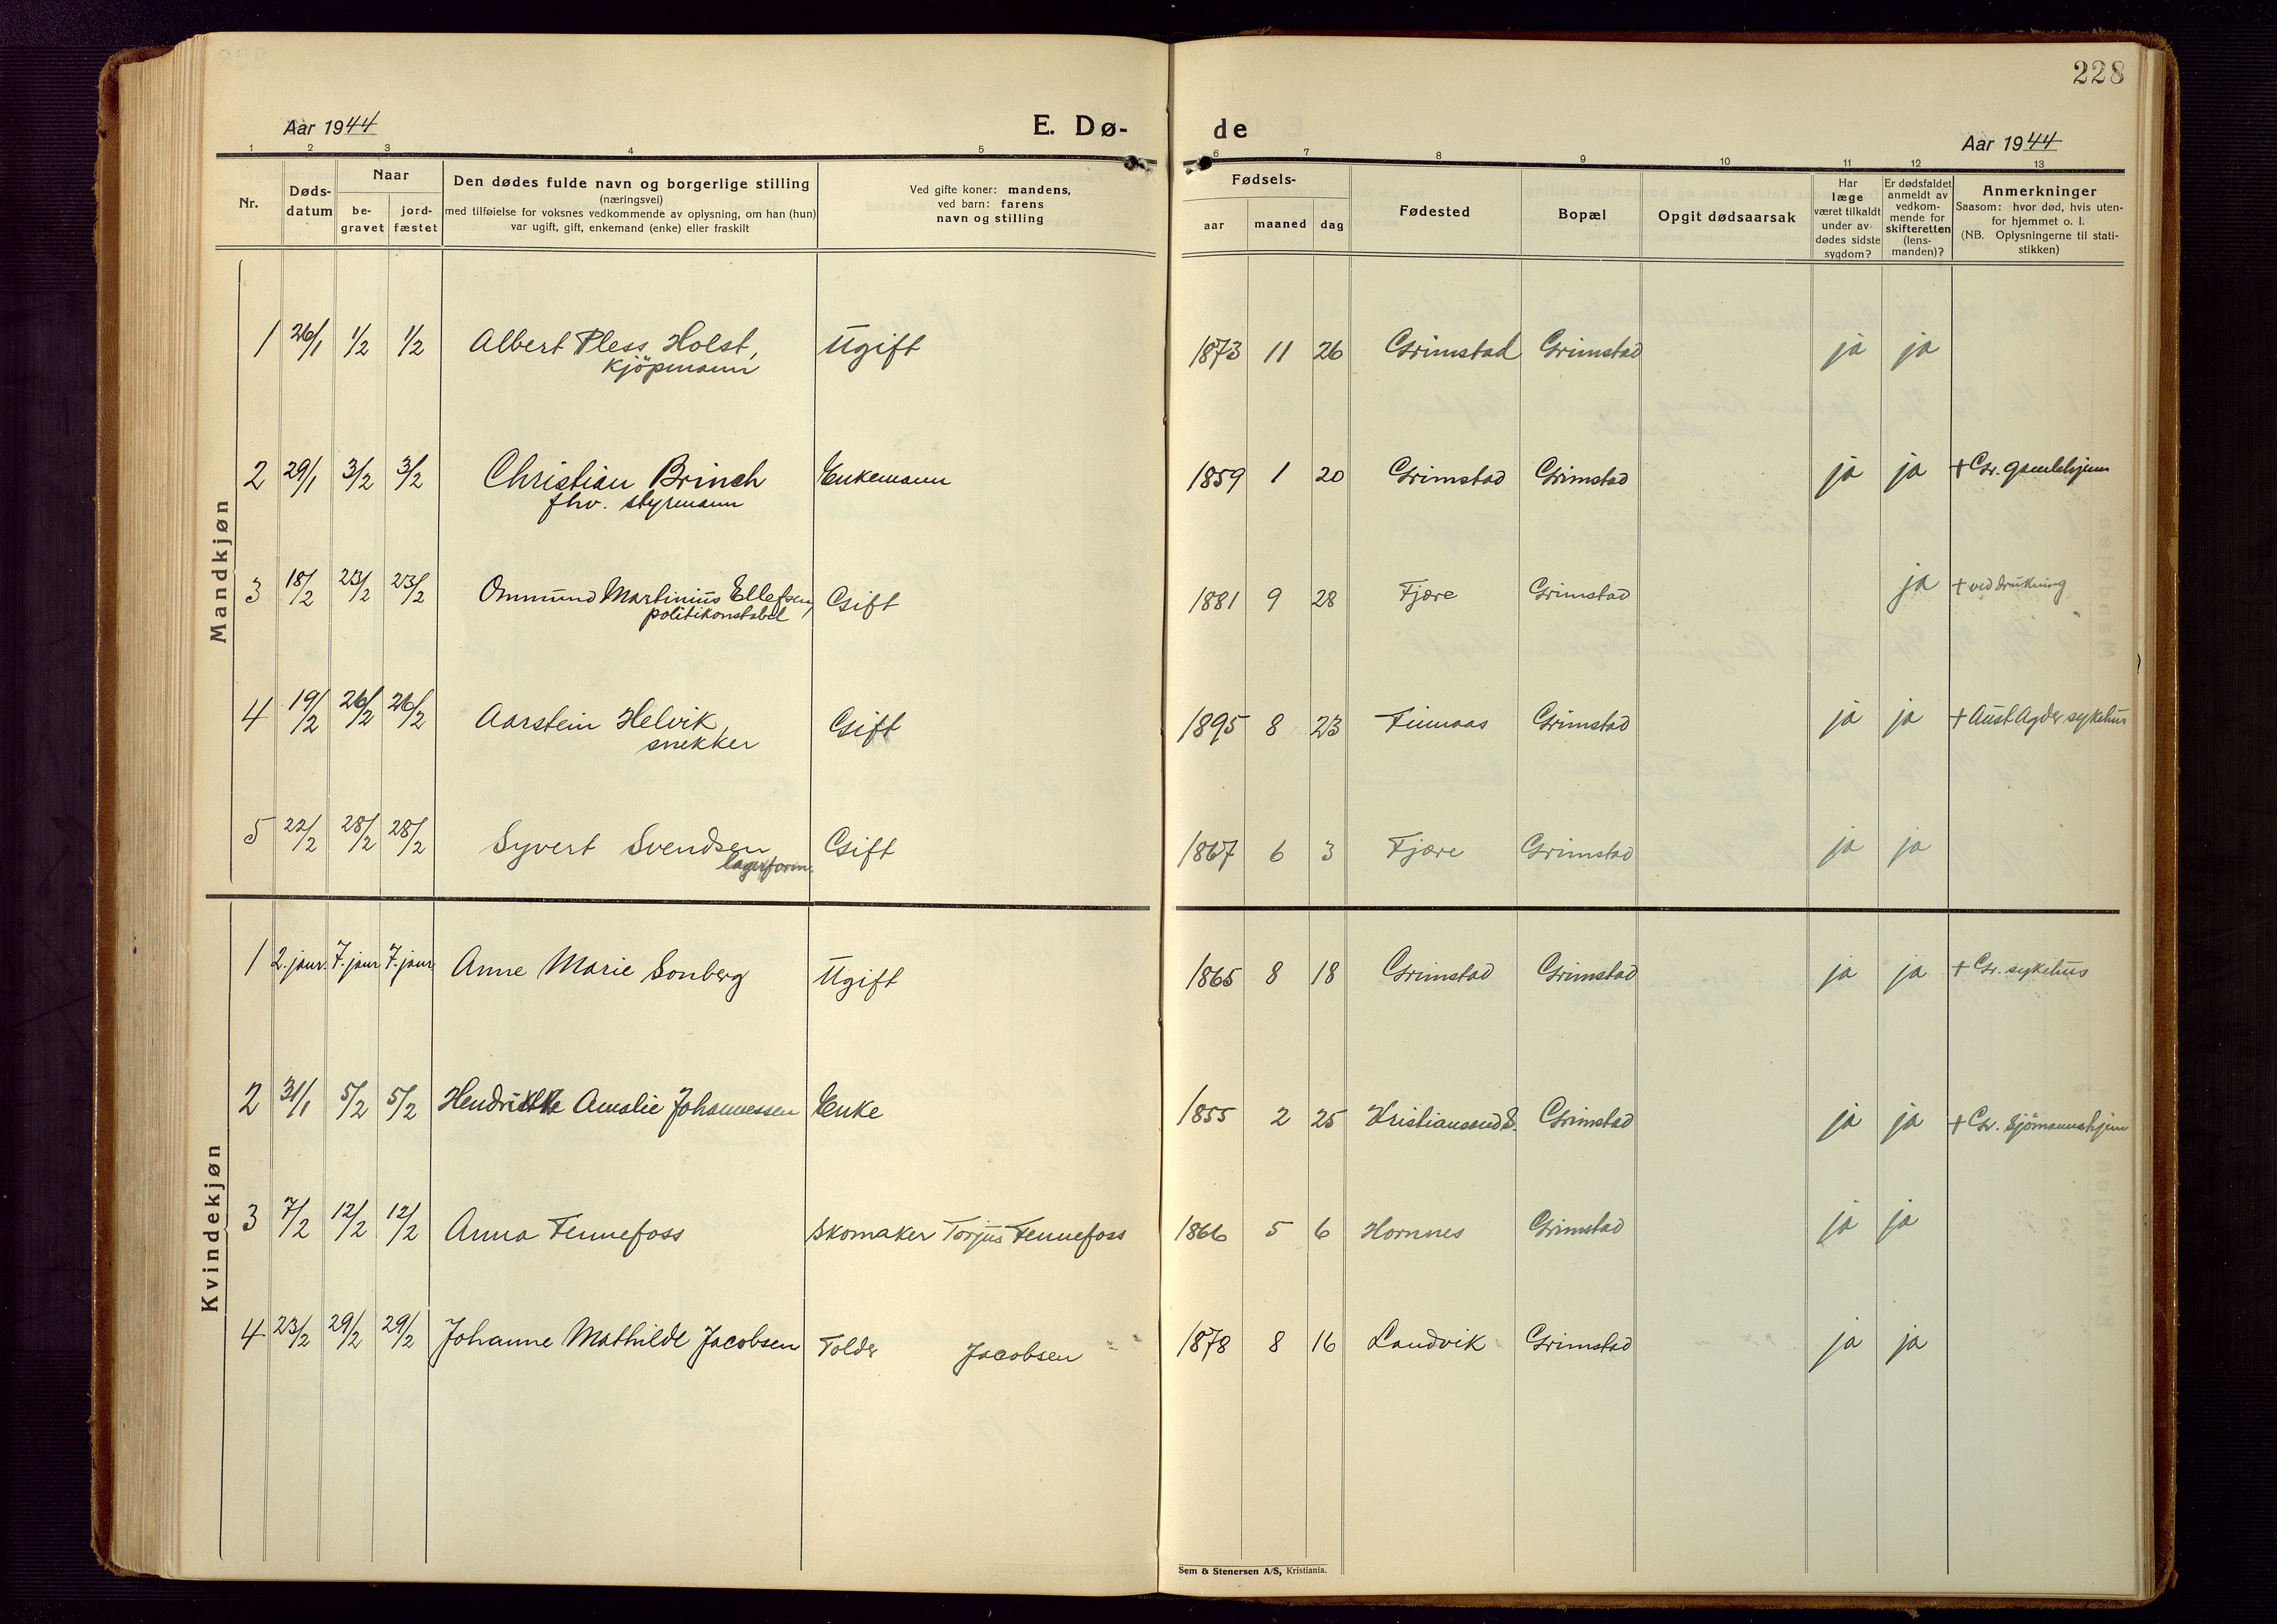 228
Aar 1944
E. Dø-
de
Aar 1944
1 2 3 4 5
6 7 8 9 10 11 12 13
Nr.
Døds-
datum
Naar
be-
gravet
jord-
fæstet
Den dødes fulde navn og borgerlige stilling
(næringsvei)
med tilføielse for voksnes vedkommende av oplysning, om han (hun)
var ugift, gift, enkemand (enke) eller fraskilt
Ved gifte koner: mandens,
ved barn: farens
navn og stilling
Fødsels-
aar maaned dag
Fødested
Bopæl
Opgit dødsaarsak
Har
læge
været tilkaldt
under av-
dødes sidste
sygdom?
Er dødsfaldet
anmeldt av
vedkom-
mende for
skifteretten
(lens-
manden)?
Anmerkninger
Saasom: hvor død, hvis uten-
for hjemmet o. l.
(NB. Oplysningerne til stati-
stikken)
Mandkjøn
1 26/1 1/2 1/2 Albert Pless Holst, Ugift 1873 11 26 Grimstad Grimstad ja ja
kjöpmann
2 29/1 3/2 3/2 Christian Brinch Enkemann 1859 1 20 Grimstad Grimstad ja ja + Gr. gamlehjem
fhv. styrmann
3 18/2 23/2 23/2 Ommund Martinius Ellefsen, Gift 1881 9 28 Fjære Grimstad ja + ved drukning
politikonstabel
4 19/2 26/2 26/2 Aarstein Helvik, Gift 1895 8 23 Finnaas Grimstad ja ja + Aust Agder sykehus
snekker
5 22/2 28/2 28/2 Syvert Svendsen Gift 1867 6 3 Fjære Grimstad ja ja
lagerform.
Kvindekjøn
1 2. januar 7. januar 7. januar Anne Marie Sonberg Ugift 1865 8 18 Grimstad Grimstad ja ja + Gr. sykehus
2 31/1 5/2 5/2 Hendrikke Amalie Johannessen Enke 1855 2 25 Kristiansand S. Grimstad ja ja + Gr. Sjömannshjem
3 7/2 12/2 12/2 Anna Fennefoss skomaker Torjus Fennefoss 1866 5 6 Hornnes Grimstad ja ja
4 23/2 29/2 29/2 Johanne Mathilde Jacobsen Tolder Jacobsen 1878 8 16 Landvik Grimstad ja ja
Sem & Stenersen A/S, Kristiania.